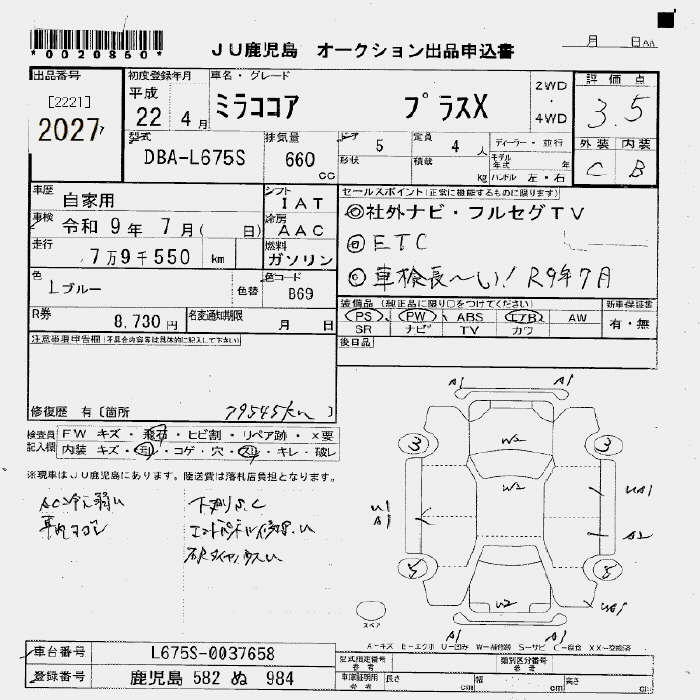 *0020850*
JU鹿児島 オークション出品申込書
月 日AA
出品番号
[2221]
2027
初度登録年月
平成
22 4月
車名・グレード
ミラココア プラスX
2WD
・
4WD
評価点
3.5
外装 内装
C B
型式
DBA-L675S
排気量
660
cc
ドア 5
形状
定員 4 人
積載 kg
ディーラー・並行
モデル年式 年
ハンドル 左・右
車歴 自家用
シフト IAT
車検 令和 9年 7月( 日)
冷房 AAC
走行 7万9千550 km
燃料 ガソリン
色 Lブルー
色替
色コード B69
R券 8,730円
名変通知期限 月 日
セールスポイント(正常に機能するものに限ります)
◎社外ナビ・フルセグTV
◎ETC
◎車検長〜い! R9年7月
装備品(純正品に限り〇をつけてください)
新車保証書
PS PW ABS エアB AW
SR ナビ TV カワ
有・無
後日品
注意事項申告欄(不具合内容等は具体的に記入して下さい)
修復歴 有〔箇所 79545km 〕
検査員記入欄
FW キズ・飛石・ヒビ割・リペア跡・×要
内装 キズ・汚・コゲ・穴・スレ・キレ・破レ
※現車はJU鹿児島にあります。陸送費は落札店負担となります。
AC冷え弱い
車内ヨゴレ
A1 A1
3 W2 3
W2
U1
A1
UA1
A2
5 W2 5
UA1
A1 A1
スペア
A－キズ E－エクボ U－凹み W－補修跡 S－サビ C－腐食 XX－交換済
車台番号 L675S-0037658
登録番号 鹿児島 582 ぬ 984
型式指定番号
参考
類別区分番号
参考
車庫証明用
参考
長さ cm 幅 cm 高さ cm